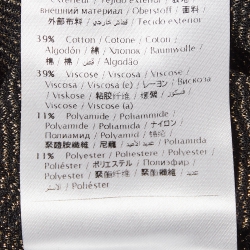 внешний материал / Oberstoff / 面料 /
外部布料 / Tecido exterior
39% Cotton / Cotone / Coton /
Algodón / 棉 / Хлопок / Baumwolle
/ 棉 / قطن / Algodão
39% Viscose / Viscosa / Viscose /
Viscosa / Viscose (e) / レーヨン / Вискоза
/ Viskose / 粘胶纤维 / 嫘縈 / فسكوز /
Viscose / Viscose (a)
11% Polyamide / Poliammide /
Polyamide / Poliamida / ナイロン /
Полиамид / Polyamid / 锦纶 /
聚醯胺纖維 / 尼龍 / Poliamida
11% Polyester / Poliestere / Polyester /
Poliéster / ポリエステル / Полиэфир /
Polyester / 聚酯纤维 / 聚酯纖維 /
Poliéster